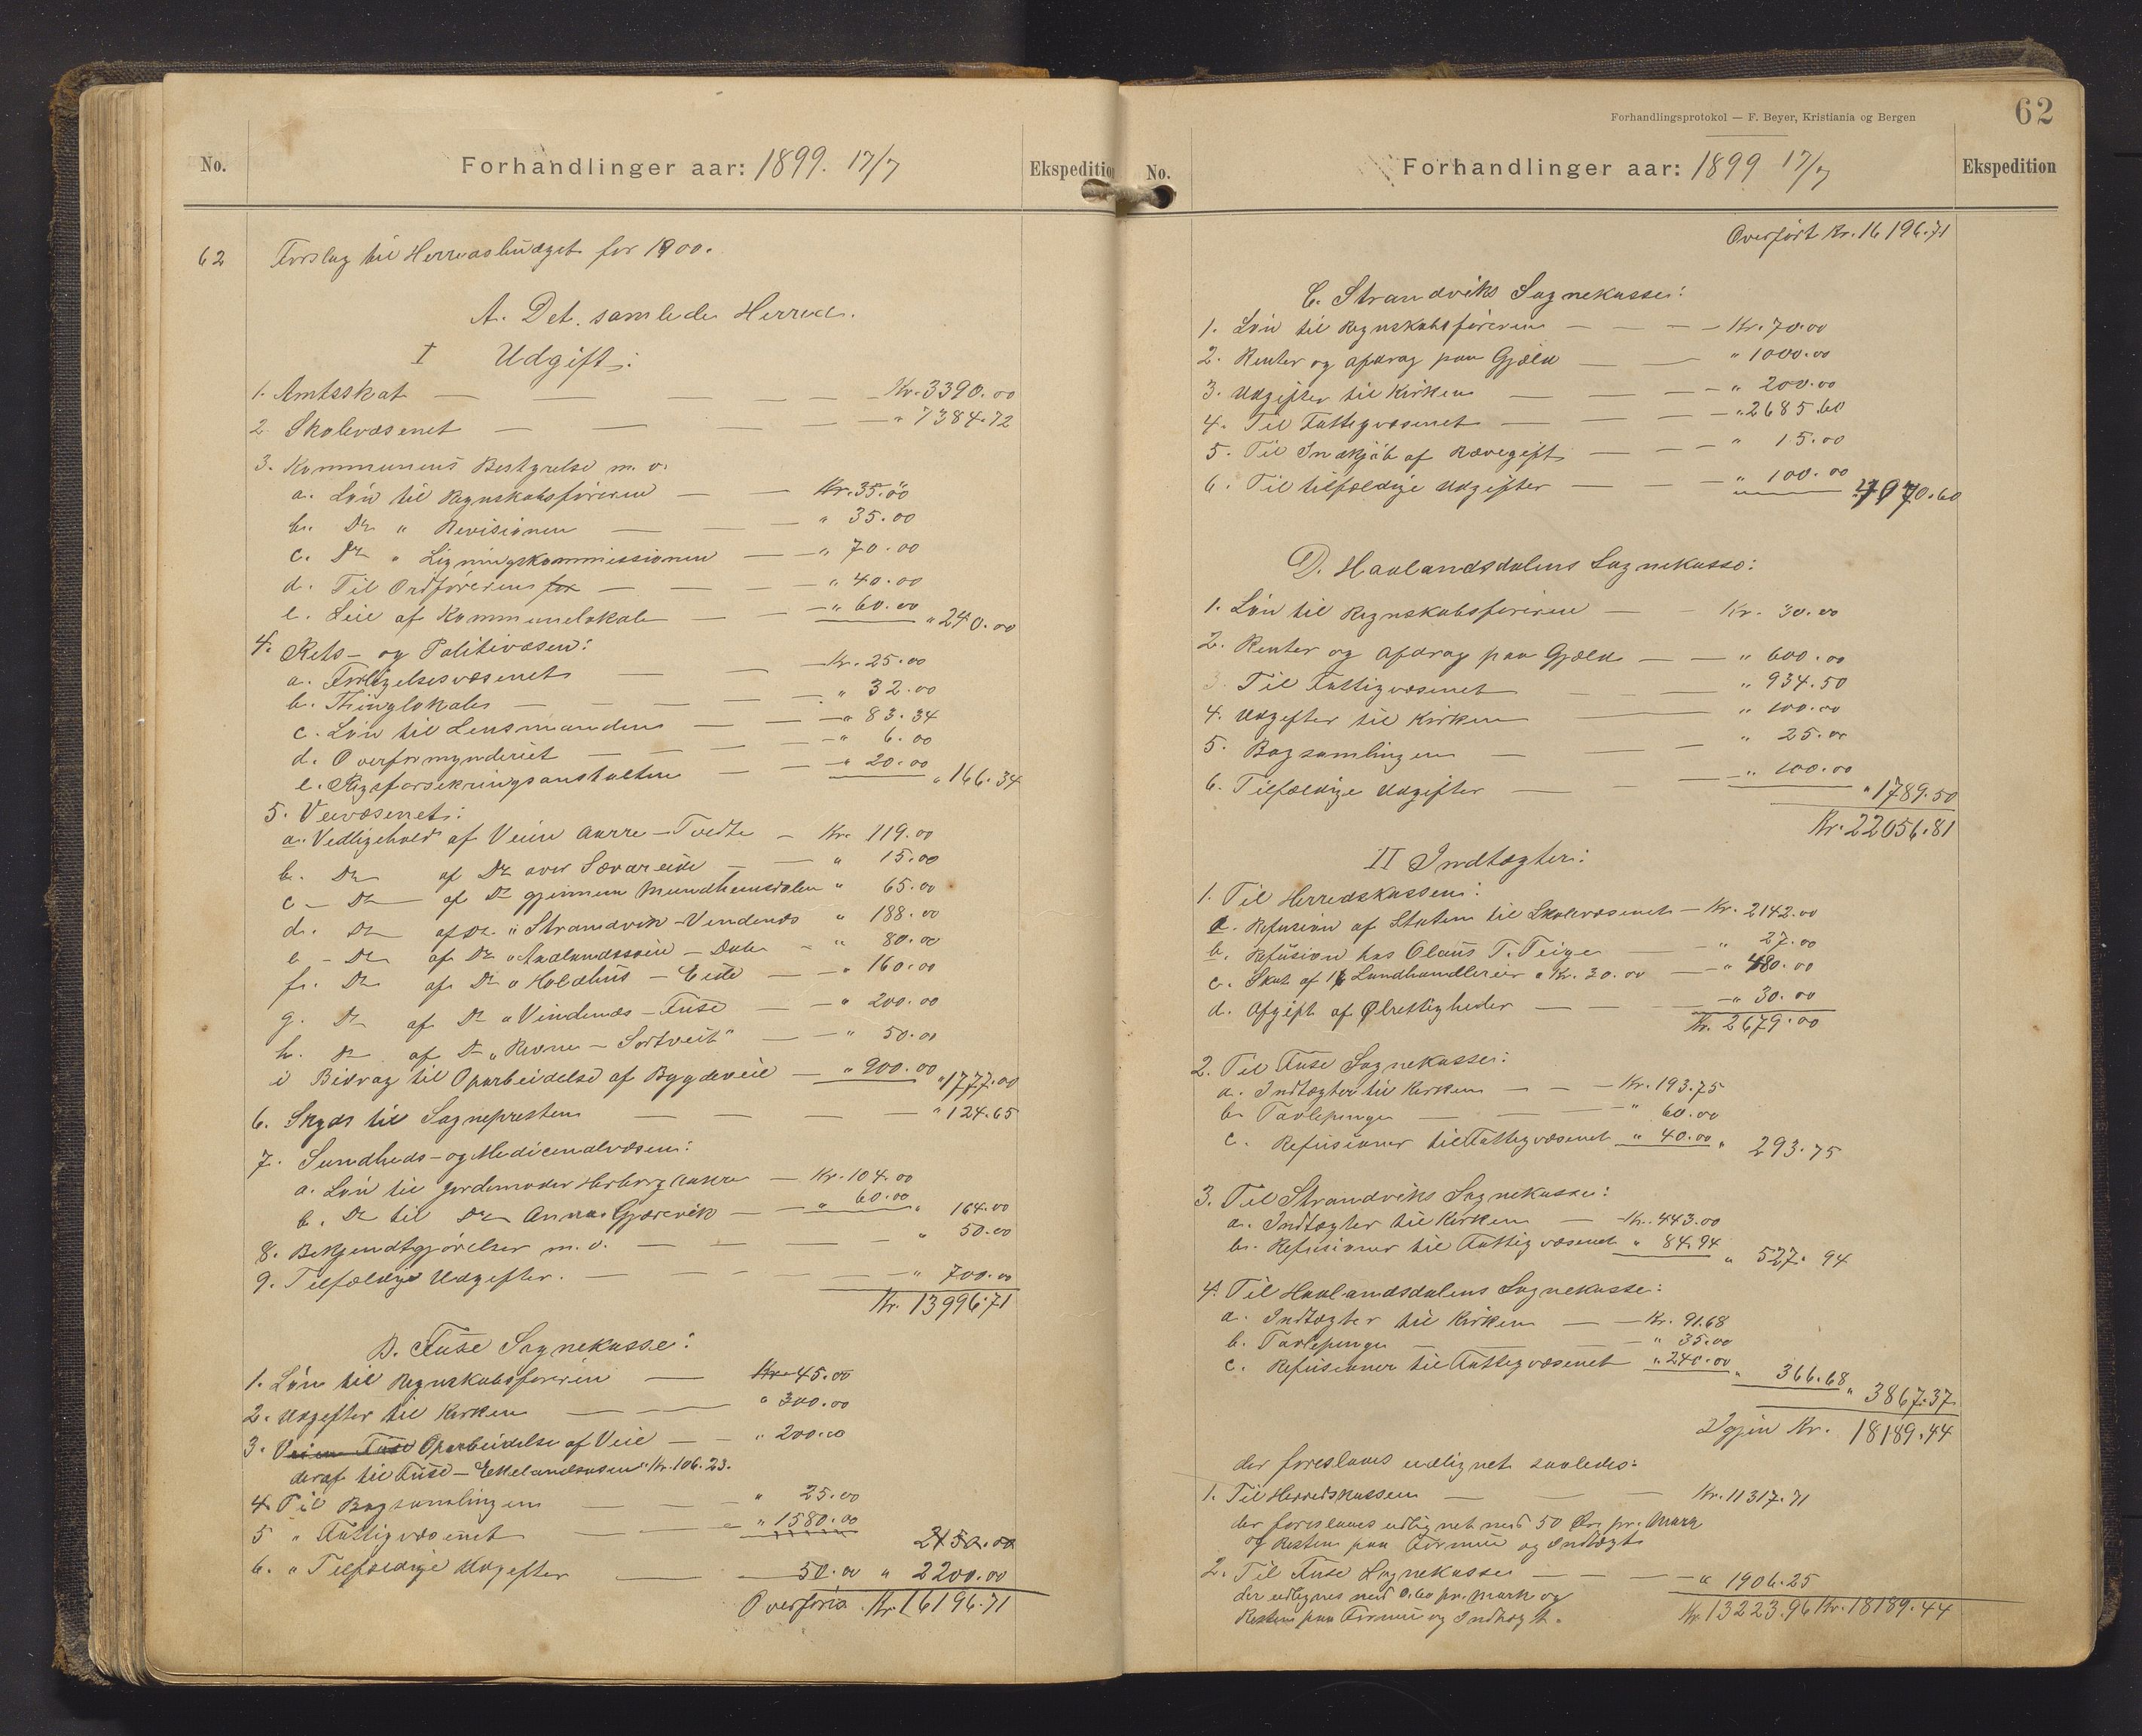 No.
Forhandlinger aar: 1899. 17/7
Ekspedition
62 Forslag til Herredsbudget for 1900.
A. Det samlede Herred.
I Udgift:
1. Amtsskat — Kr. 3390.00
2. Skolevæsenet — " 7384.72
3. Kommunens Bestyrelse m. v.
a. Løn til Regnskabsføreren — Kr. 35.00
b. Do " Revisionen — " 35.00
c. Do " Ligningskommissionen — " 70.00
d. Til Ordføreren for — " 40.00
e. Leie af Kommunelokale — " 60.00 " 240.00
4. Rets- og Politivæsen:
a. Forligelsesvæsenet — Kr. 25.00
b. Thinglokale — " 32.00
c. Løn til Lensmanden — " 83.34
d. Overformynderiet — " 6.00
e. Rigsforsikringsanstalten — " 20.00 " 166.34
5. Veivæsenet:
a. Vedligehold af Veien Aarre-Tvedte — Kr. 119.00
b. Do af Do over Sævareide — " 15.00
c. Do af Do gjennem Mundheimsdalen " 65.00
d. Do af Do " Strandvik-Vendenæs " 188.00
e. Do af Do " Aadlandsveien - Dale — " 80.00
f. Do af Do " Holdhus - Eide — " 160.00
g. Do af Do " Vindenæs - Fuse — " 200.00
h. Do af Do " Revne - Sortveit" — " 50.00
i Bidrag til Oparbeidelse af Bygdeveie — " 900.00 " 1777.00
6. Skyds til Sognepresten — " 124.65
7. Sundheds- og Medicinalvæsen:
a. Løn til Jordemoder Herborg Aakre — Kr. 104.00
b. Do til Do Anna Gjærevik — " 60.00 " 164.00
8. Bekjendtgjørelser m. v. — " 50.00
9. Tilfældige Udgifter. — " 700.00
Kr. 13996.71
B. Fuse Sognekasse:
1. Løn til Regnskabsføreren — Kr. 45.00
2. Udgifter til Kirken — " 300.00
3. Veien Fuse Oparbeidelse af Veie — " 200.00
deraf til Fuse-Ekelandsosen" Kr. 106.23.
4. Til Bogsamlingen — " 25.00
5 " Fattigvæsenet — " 1580.00
2150.00
6. " Tilfældige Udgifter — 50.00 " 2200.00
Overføres Kr. 16196.71
Forhandlingsprotokol — F. Beyer, Kristiania og Bergen
62
No.
Forhandlinger aar: 1899 17/7
Ekspedition
Overført Kr. 16196.71
C. Strandviks Sognekasse:
1. Løn til Regnskabsføreren — Kr. 70.00
2. Renter og Afdrag paa Gjæld — " 1000.00
3. Udgifter til Kirken — " 200.00
4. Til Fattigvæsenet — " 2685.60
5. Til Indkjøb af Rævegift — " 15.00
6. Til tilfældige Udgifter — " 100.00 " 4070.60
D. Haalandsdalens Sognekasse:
1. Løn til Regnskabsføreren — Kr. 30.00
2. Renter og Afdrag paa Gjæld — " 600.00
3. Til Fattigvæsenet — " 934.50
4. Udgifter til Kirken — " 100.00
5. Bogsamlingen — " 25.00
6. Tilfældige Udgifter — " 100.00 " 1789.50
Kr. 22056.81
II Indtægter:
1. Til Herredskassen:
a. Refusion af Staten til Skolevæsenet — Kr. 2142.00
b. Refusion hos Olaus T. Teige — " 27.00
c. Skat af 16 Landhandlerier a Kr. 30.00 — " 480.00
d. Afgift af Ølrettigheder — " 30.00
Kr. 2679.00
2. Til Fuse Sognekasse:
a. Indtægter til Kirken — Kr. 193.75
b. Tavlepenge — " 60.00
c. Refusioner til Fattigvæsenet " 40.00 " 293.75
3. Til Strandviks Sognekasse:
a. Indtægter til Kirken — Kr. 443.00
b. Refusioner til Fattigvæsenet " 84.94 " 527.94
4. Til Haalandsdalens Sognekasse:
a. Indtægter til Kirken — Kr. 91.68
b. Tavlepenge — " 35.00
c. Refusioner til Fattigvæsenet " 240.00 " 366.68 " 3867.37
Igjen Kr. 18189.44
der foreslaaes udlignet saaledes:
1. Til Herredskassen — Kr. 11317.71
der foreslaaes udlignet med 50 Øre pr. Mark
og Resten paa Formue og Indtægt
2. Til Fuse Sognekasse — " 1906.25
der udlignes med 0.60 pr. Mark og
Resten paa Formue og Indtægt. Kr. 13223.96 Kr. 18189.44